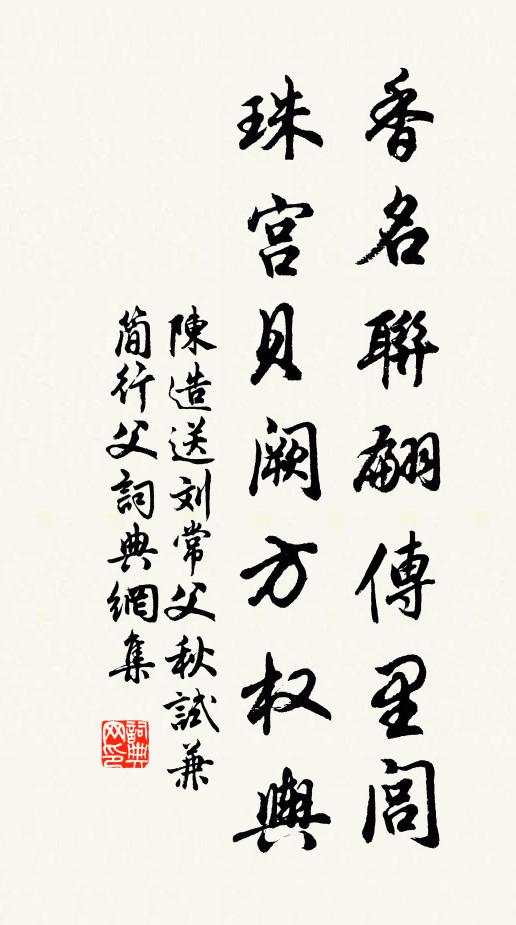 香名聯翩傳里閭
珠宮貝闕方权輿
陳造送刘常父秋試兼
簡行父詞典網集
詞典
网印